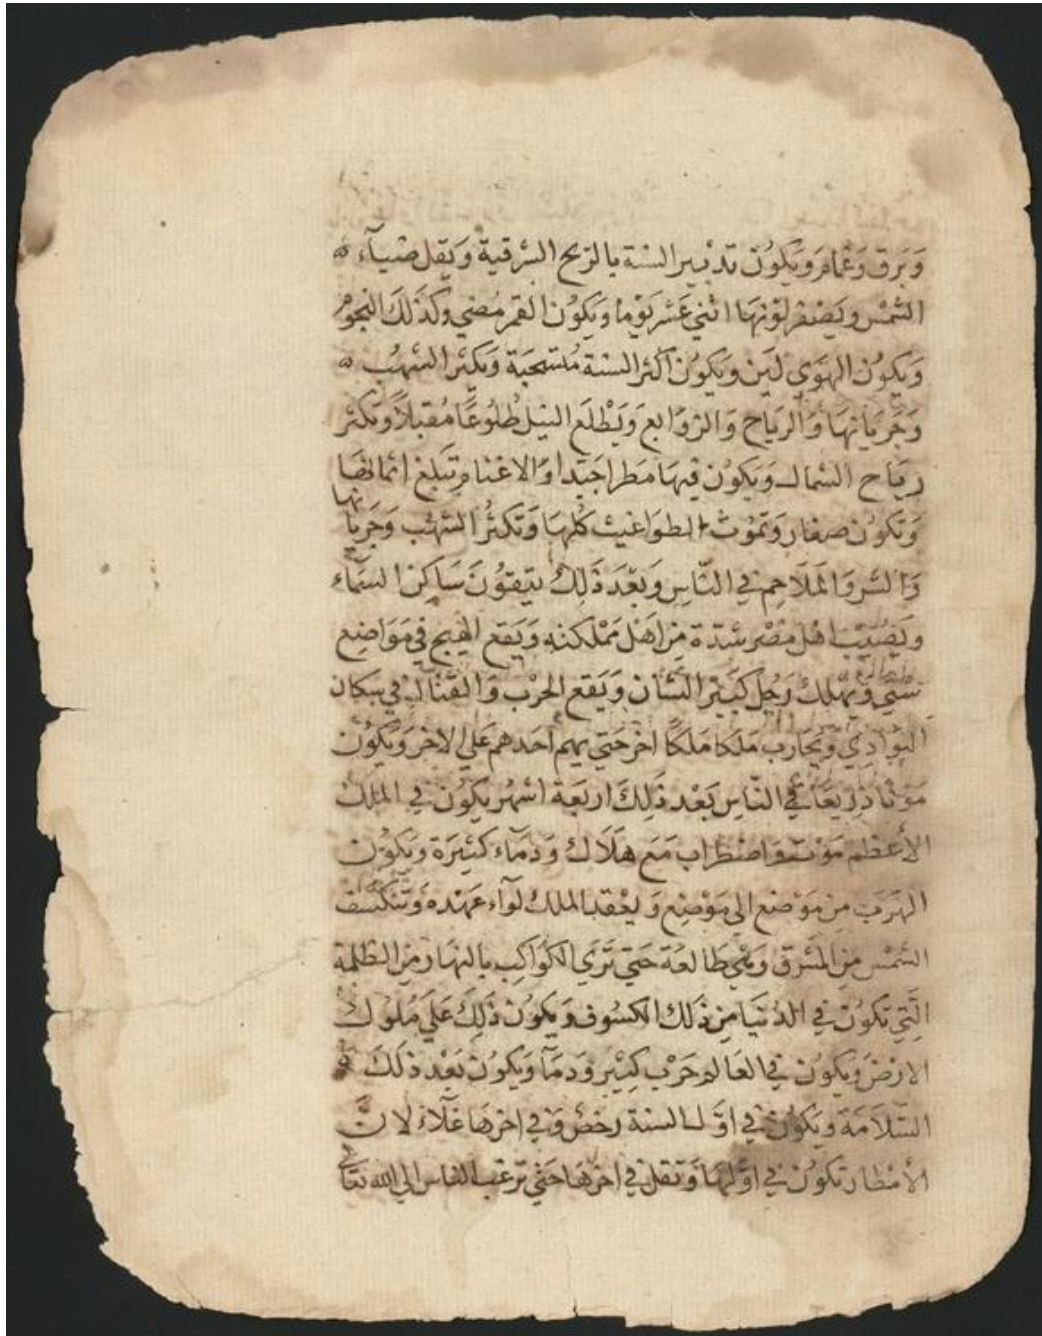 وَبَرق وَغمام وَيَكوُن تدبير السنة بالريح الشرقية وَيَقل ضيآء
الشمْس وَيَصْفر لوْنهَا اثني عَشر يَوْمًا وَيَكوُن القمر مُضي وكذلَكَ النجوْم
وَيكوُن الهوَي لين وَيكوُن اكثر السنة وَيكثر الشهُب
وَجَريَانهَا وَالريَاح وَالزوَابع وَيَطْلَع النيل طلوُعًا مُقبلاً وَتكثر
ريَاح الشمال وَيَكوُن فيهَا مَطرا جَيّدا وَالاغنام تبَلغ اثمانهَا
وَتكوُن صغار وَتموُت الطوَاغيت كلهَا وَتكثُر الشهُب وَجَريانها
وَالشر وَالمَلَاحِم في النّاسِ وَبَعْدَ ذَلِكَ يتقوُنَ سَاكن السمَآء
وَيَصُيْب اهْل مصْر شدّة مِن اهَل مَمْلكته وَيَقع الهيج في مَوَاضِع
شتي وَيَهْلك رَجُل كبَير الشان وَيَقع الحرْب وَالقتال في سكان
البَوَادِي وَيُحَارب مَلكا مَلكًا اخر حَتي يهم احَدهم عَلي الاخر وَيَكوُن
مَوْتا ذرِيعًا في النّاس بَعْد ذَلِكَ اربَعَة اشهُر يَكوُن في الملك
الأعظم مَوْت وَاضطراب مَعَ هَلَاك وَدمآء كثيرَة وَيَكوُن
الهرَب مِن مَوْضع الى مَوْضِع وَيعْقد الملك لوَآء عَهْدهُ وَتنكسف
الشمْس مِن المشرق وَهْي طَالعَة حَتي ترَي الكوَاكِب بالنهار مِن الظلمة
الَتِي تكوُن في الدُنيَا مِن ذَلك الكسوُف وَيكوُن ذَلِكَ عَلي مُلوُك
الارض وَيكوُن في العَالم حَرْب كبيْر وَدمَآ وَيكوُن بَعْد ذلكَ
السّلَامَة وَيَكوُن في اوّل السنة رخصْ وَفي اخرهَا غلَآء لانّ
الأمْطار تكوُن في اوّلهَا وَتقل في اخرهَا حَتي ترغب الناس الي الله تعَالي